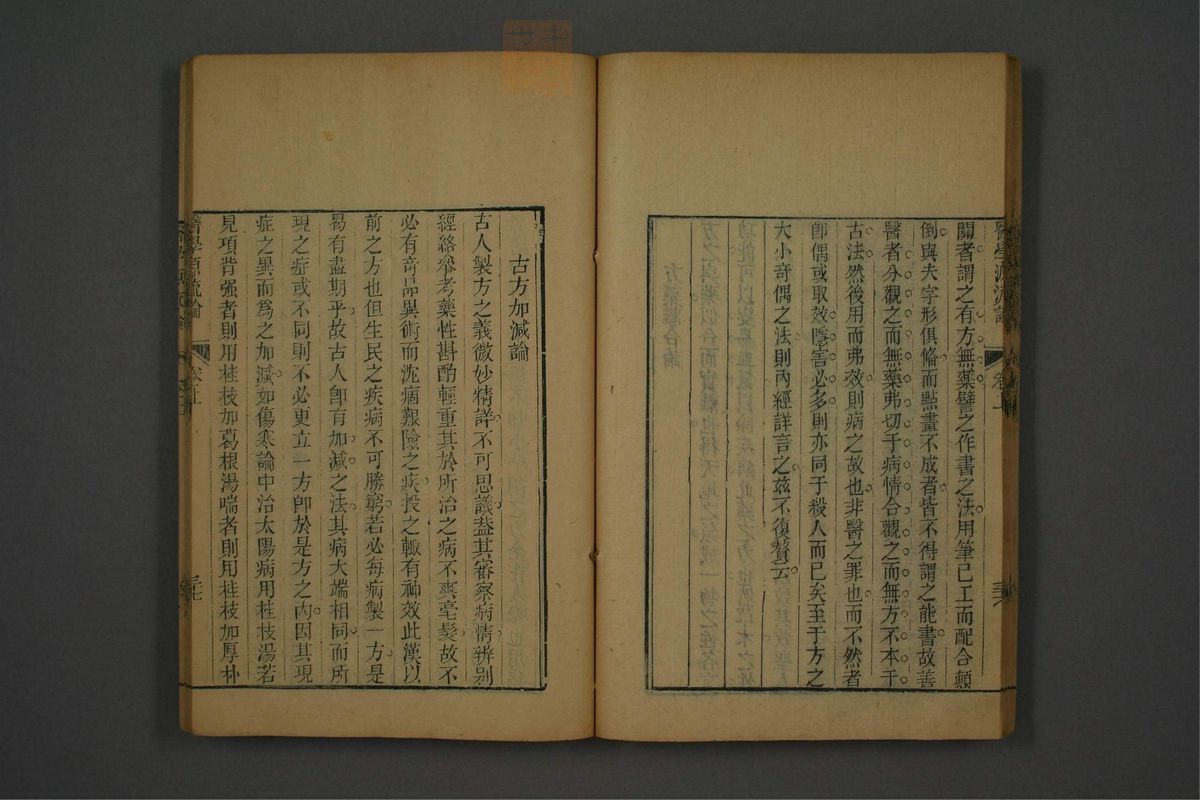 醫學源流論 卷上 三六
關者謂之有方無藥譬之作書之法用筆已工而配合顛
倒與夫字形俱備而點畫不成者皆不得謂之能書故善
醫者分觀之而無藥弗切于病情合觀之而無方不本于
古法然後用而弗效則病之故也非醫之罪也而不然者
卽偶或取效隱害必多則亦同于殺人而已矣至于方之
大小奇偶之法則內經詳言之茲不復贅云
古方加減論
古人製方之義微妙精詳不可思議葢其審察病情辨别
經絡參考藥性斟酌輕重其於所治之病不爽毫髮故不
必有奇品異術而沈痼艱險之疾投之輒有神效此漢以
前之方也但生民之疾病不可勝窮若必每病製一方是
曷有盡期乎故古人卽有加減之法其病大端相同而所
現之症或不同則不必更立一方卽於是方之內因其現
症之異而爲之加減如傷寒論中治太陽病用桂枝湯若
見項背强者則用桂枝加葛根湯喘者則用桂枝加厚朴
醫學源流論 卷上 三七